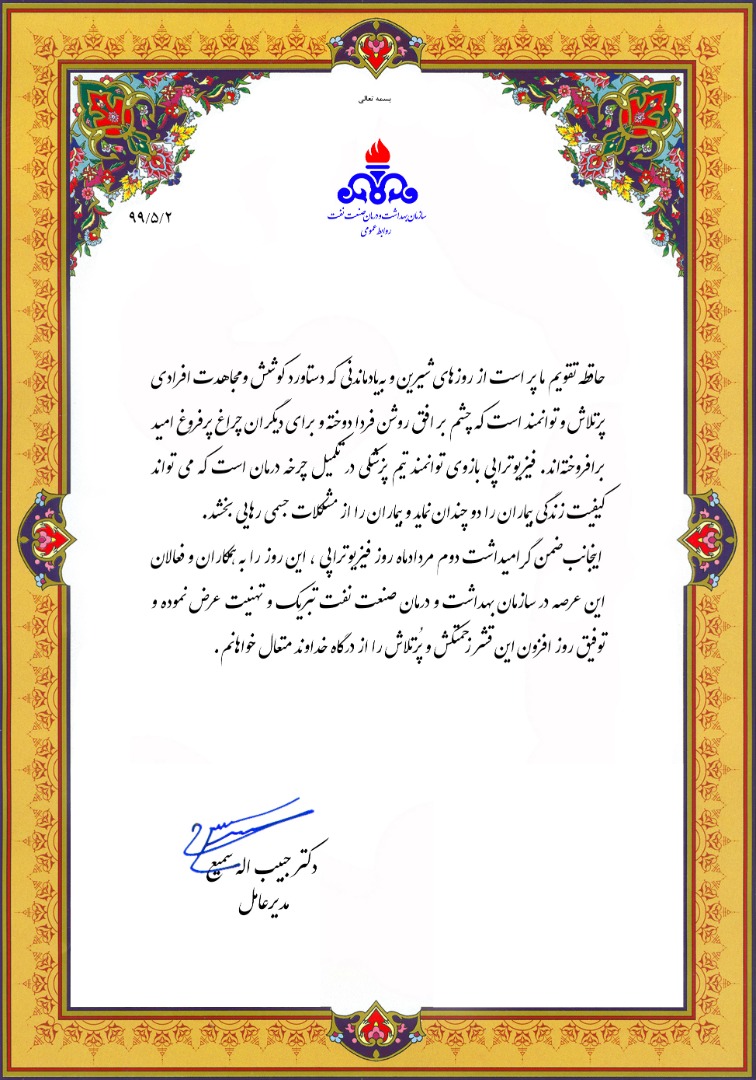 بسمه تعالی
سازمان بهداشت و درمان صنعت نفت
روابط عمومی
۹۹/۵/۲
حافظه تقویم ما پر است از روزهای شیرین و به یادماندنی که دستاورد کوشش ومجاهدت افرادی
پرتلاش و توانمند است که چشم بر افق روشن فردا دوخته و برای دیگران چراغ پرفروغ امید
برافروخته‌اند. فیزیوتراپی بازوی توانمند تیم پزشکی در تکمیل چرخه درمان است که می تواند
کیفیت زندگی بیماران را دو چندان نماید و بیماران را از مشکلات جسمی رهایی بخشد.
اینجانب ضمن گرامیداشت دوم مردادماه روز فیزیوتراپی ، این روز را به همکاران و فعالان
این عرصه در سازمان بهداشت و درمان صنعت نفت تبریک و تهنیت عرض نموده و
توفیق روز افزون این قشر زحمتکش و پُرتلاش را از درگاه خداوند متعال خواهانم .
دکتر حبیب اله سمیع
مدیرعامل